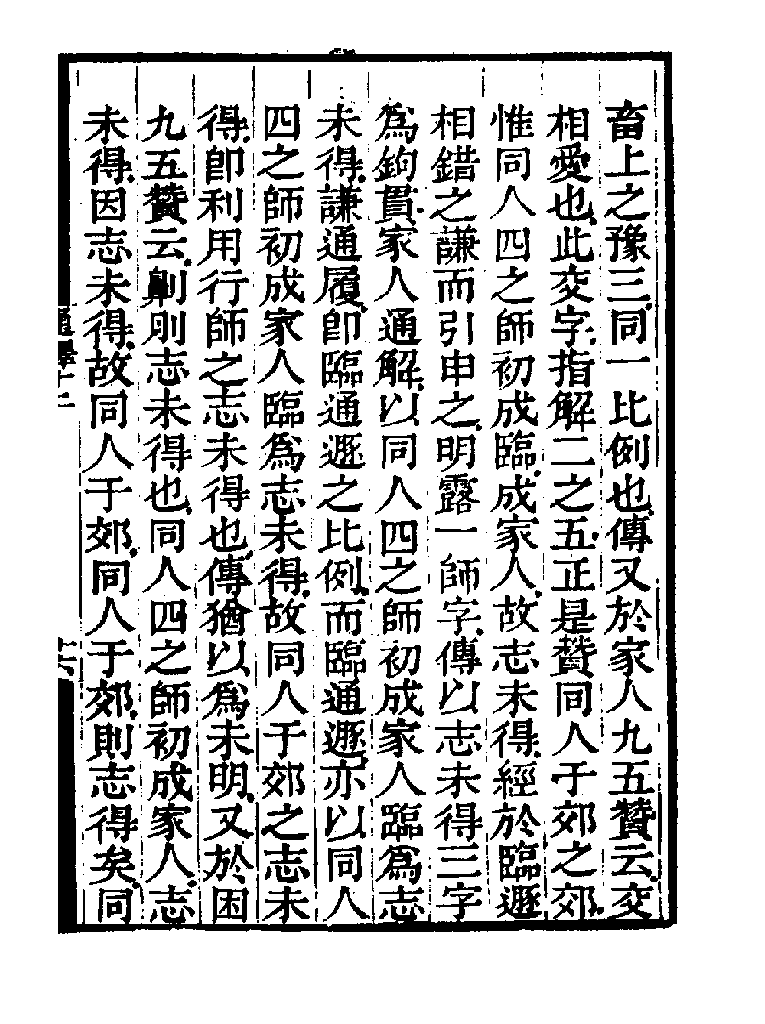 畜上之豫三同一比例也傳又於家人九五贊云交
相愛也此交字指解二之五正是贊同人于郊之郊
惟同人四之師初成臨成家人故志未得經於臨遯
相錯之謙而引申之明露一師字傳以志未得三字
爲鉤貫家人通解以同人四之師初成家人臨爲志
未得謙通履卽臨通遯之比例而臨通遯亦以同人
四之師初成家人臨爲志未得故同人于郊之志未
得卽利用行師之志未得也傳猶以爲未明又於困
九五贊云劓刖志未得也同人四之師初成家人志
未得因志未得故同人于郊同人于郊則志得矣同
通釋十二
十六